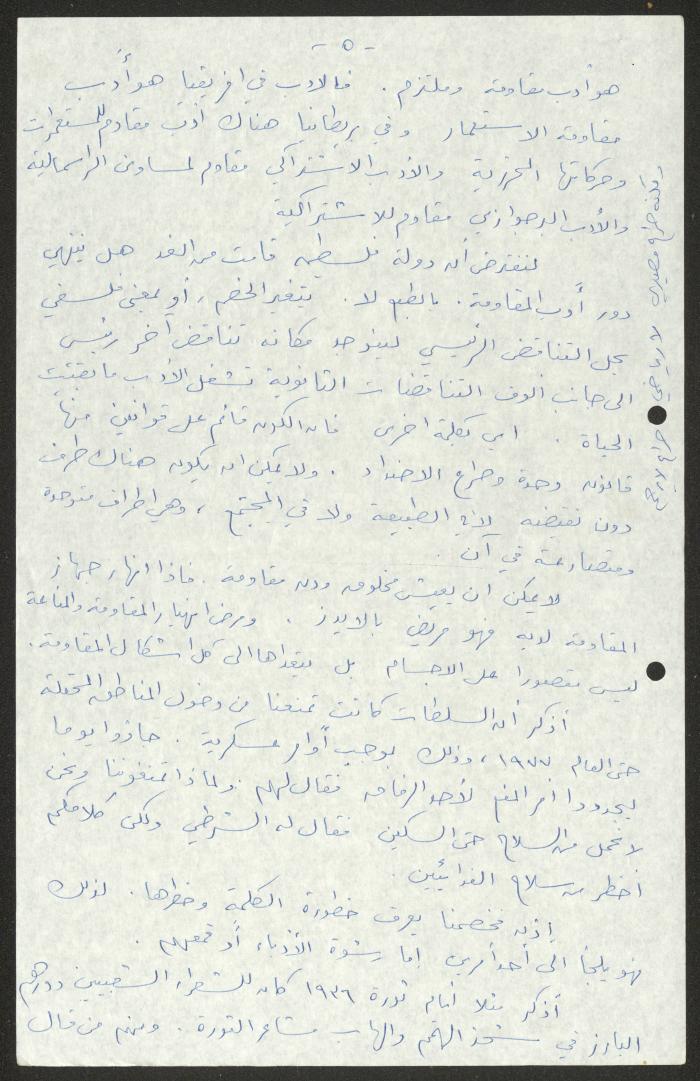 - ٥ -
هو أدب مقاومة وملتزم . فالادب في افريقيا هو أدب
مقاومة الاستعمار وفي بريطانيا هناك أدب مقاوم للمستعمرات
وحركاتها التحررية والأدب الاشتراكي مقاوم لمساوئ الرأسمالية
والأدب البرجوازي مقاوم للاشتراكية
لنفترض أن دولة فلسطين قامت من الغد هل ينتهي
دور أدب المقاومة . بالطبع لا . يتغير الخصم ، أو بمعنى فلسفي
يحل التناقض الرئيسي ليوجد مكانه تناقض آخر رئيسي
الى جانب الوف التناقضات الثانوية تشغل الأدب ما بقيت
الحياة . اي بكلمة اخرى فان الكون قائم على قوانين منها
قانون وحدة وصراع الاضداد . ولا يمكن ان يكون هناك طرف
دون نقيضه لا في الطبيعة ولا في المجتمع ، وهي اطراف متوحدة
ومتصارعة في آن .
لا يمكن ان يعيش مخلوق دون مقاومة . فاذا انهار جهاز
المقاومة لديه فهو مريض بالايدز . ومرض انهيار المقاومة والمناعة
ليس مقصورا على الاجسام بل يتعداها الى كل اشكال المقاومة .
أذكر أن السلطات كانت تمنعنا من دخول المناطق المحتلة
حتى العام ١٩٧٧ ، وذلك بموجب أوامر عسكرية . جاؤوا يوما
ليجددوا أمر المنع لأحد الرفاق فقال لهم ولماذا تمنعوننا ونحن
لا نحمل من السلاح حتى السكين فقال له الشرطي ولكن كلامكم
أخطر من سلاح الفدائيين .
إذن فخصمنا يعرف خطورة الكلمة وخطرها . لذلك
فهو يلجأ الى أحد أمرين اما رشوة الأدباء أو قمعهم .
أذكر مثلا أنام ثورة ١٩٣٦ كان للشعراء الشعبيين دورهم
البارز في شحذ الهمم والهاب مشاعر الثورة . ومنهم من قال